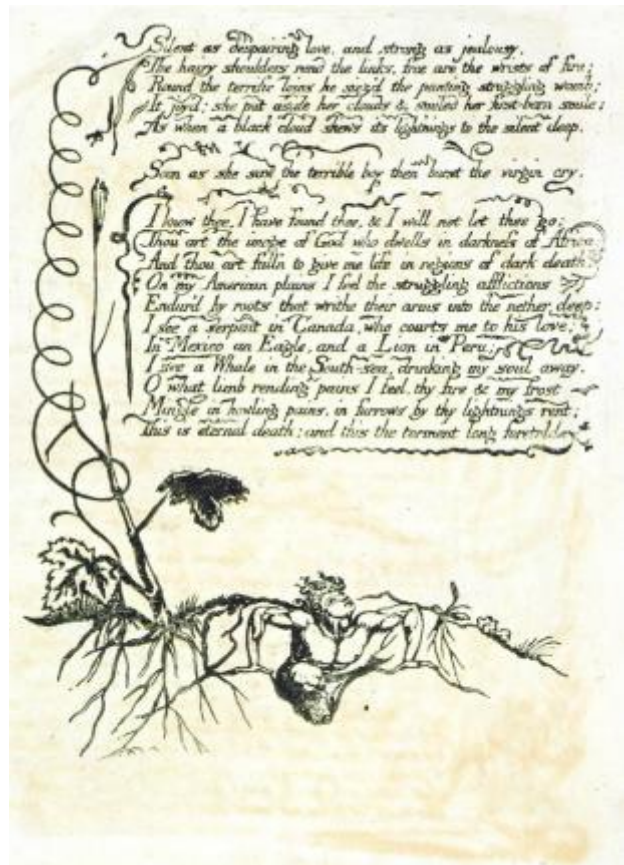 Silent as despairing love, and strong as jealousy,
The hairy shoulders rend the links, free are the wrists of fire;
Round the terrific loins he siez'd the panting struggling womb;
It joy'd: she put aside her clouds & smiled her first-born smile;
As when a black cloud shews its lightnings to the silent deep.
Soon as she saw the terrible boy then burst the virgin cry.
I know thee, I have found thee, & I will not let thee go;
Thou art the image of God who dwells in darkness of Africa
And thou art fall'n to give me life in regions of dark death.
On my American plains I feel the struggling afflictions
Endur'd by roots that writhe their arms into the nether deep:
I see a serpent in Canada, who courts me to his love;
In Mexico an Eagle, and a Lion in Peru;
I see a Whale in the South-sea, drinking my soul away.
O what limb rending pains I feel, thy fire & my frost
Mingle in howling pains, in furrows by thy lightnings rent;
This is eternal death; and this the torment long foretold.